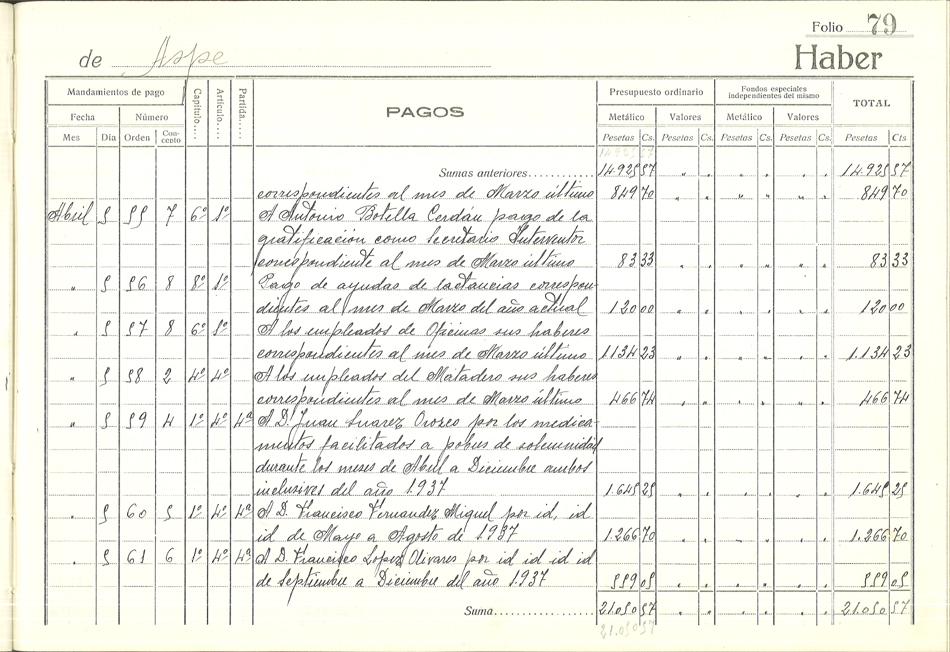 Folio 79
de Aspe Haber
Mandamientos de pago Capítulo.... Artículo.... Partida.... PAGOS Presupuesto ordinario Fondos especiales independientes del mismo TOTAL
Fecha Número Metálico Valores Metálico Valores
Mes Día Orden Concepto Pesetas Cs. Pesetas Cs. Pesetas Cs. Pesetas Cs. Pesetas Cts
14.925 57
Sumas anteriores 14.925 57 " " " " " " 14.925 57
correspondientes al mes de Marzo último 849 70 " " " " " " 849 70
Abril 5 55 7 6º 1º A Antonio Botella Cerdán pago de la
gratificación como Secretario Interventor
correspondiente al mes de Marzo último 83 33 " " " " " " 83 33
" 5 56 8 8º 1º Pago de ayudas de lactancias correspon-
dientes al mes de Marzo del año actual 120 00 " " " " " " 120 00
" 5 57 8 6º 1º A los empleados de Oficinas sus haberes
correspondientes al mes de Marzo último 1134 23 " " " " " " 1.134 23
" 5 58 2 4º 4º A los empleados del Matadero sus haberes
correspondientes al mes de Marzo último 466 74 " " " " " " 466 74
" 5 59 4 1º 4º 4ª A D. Juan Suarez Orozco por los medica-
mentos facilitados a pobres de solemnidad
durante los meses de Abril a Diciembre ambos
inclusives del año 1.937 1.645 25 " " " " " " 1.645 25
" 5 60 5 1º 4º 4ª A D. Francisco Fernandez Miguel por id, id
id de Mayo a Agosto de 1.937 1.266 70 " " " " " " 1.266 70
" 5 61 6 1º 4º 4ª A D. Francisco Lopez Olivares por id id id id
de Septiembre a Diciembre del año 1.937 559 05 " " " " " " 559 05
Suma 21.050 57 " " " " " " 21.050 57
21.050 57